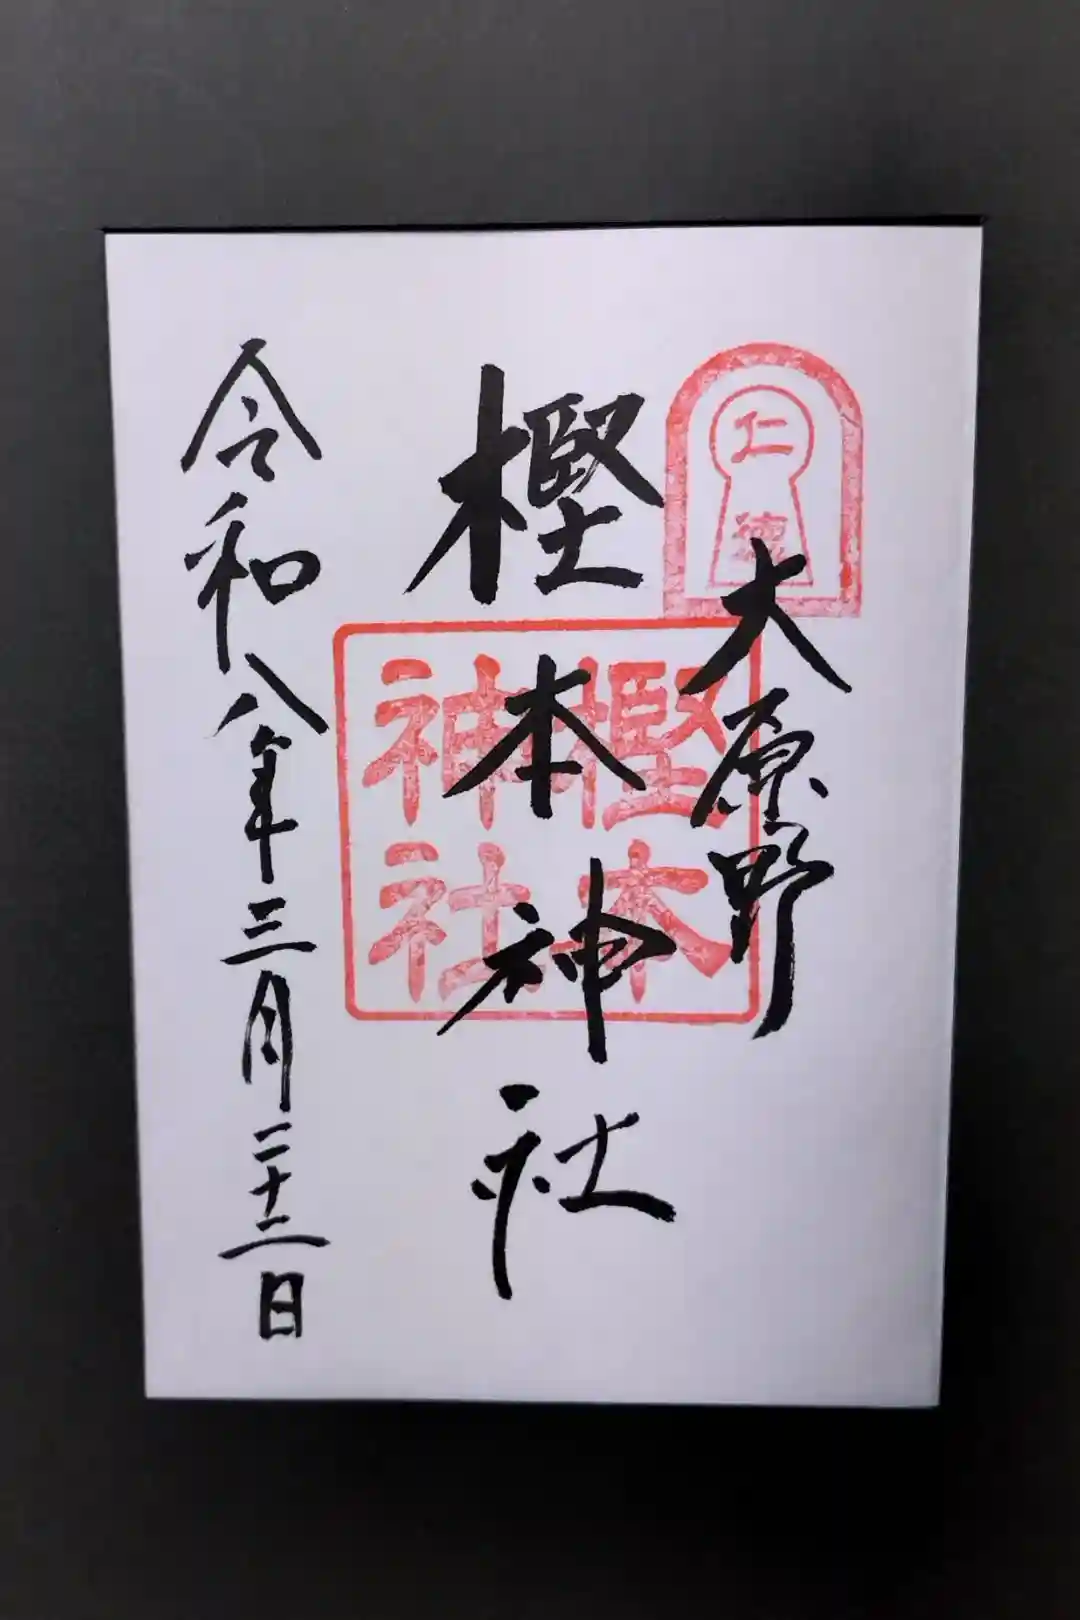 仁徳
大原野
樫本神社
樫本
神社
令和八年三月二十二日